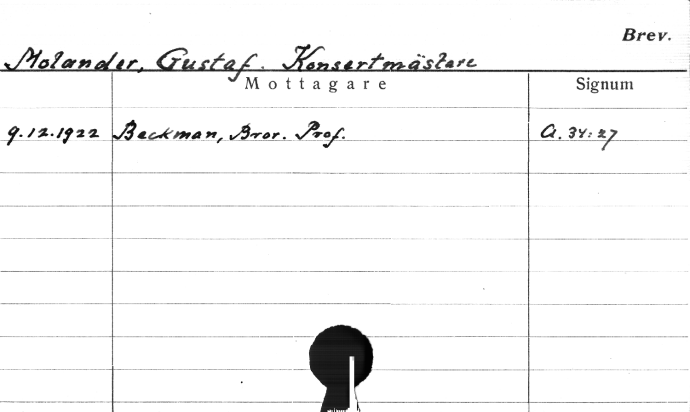 Brev.
Molander, Gustaf. Konsertmästare
Mottagare Signum
9.12.1922 Beckman, Bror. Prof. A. 34:27